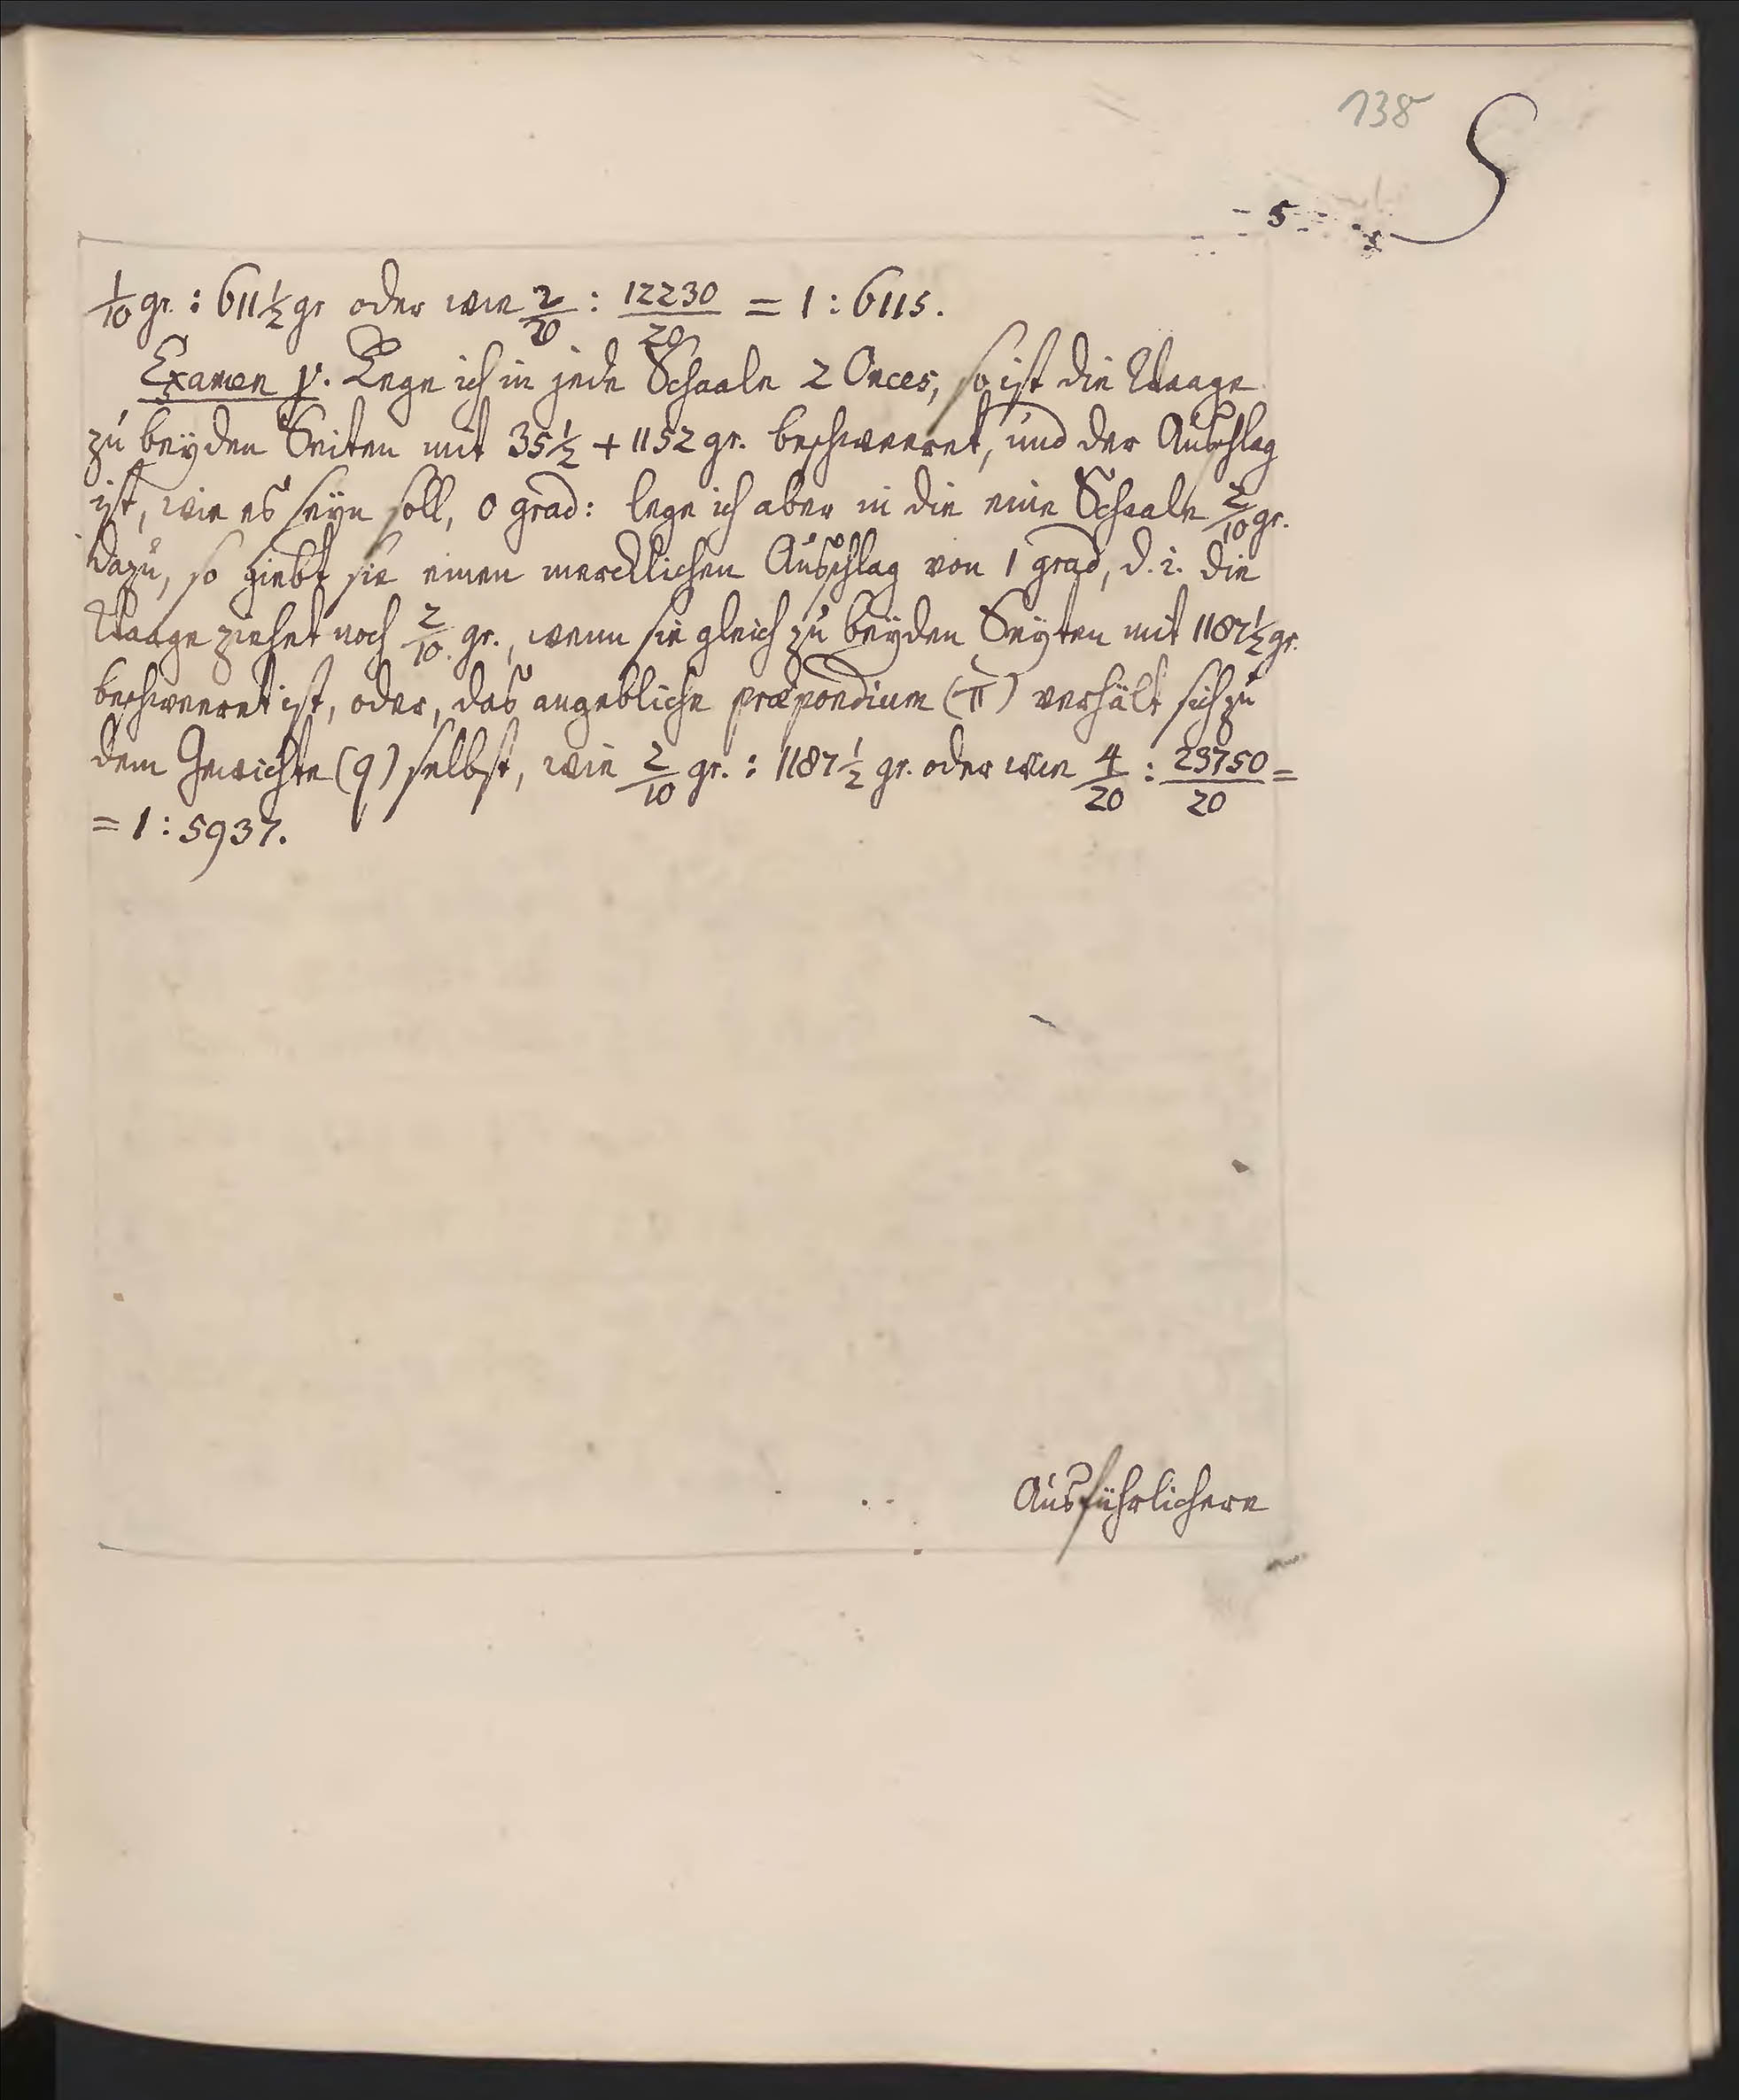 138
5
1/10 gr. : 611 1/2 gr oder wie 2/20 : 12230/20 = 1 : 6115.
Examen γ. Lege ich in jede Schaale 2 Onces, so ist die Waage
zu beyden Seiten mit 35 1/2 + 1152 gr. beschweeret, und der Ausschlag
ist, wie es seyn soll, 0 grad: lege ich aber in die eine Schaale 2/10 gr.
dazu, so giebt sie einen mercklichen Ausschlag von 1 grad, d. i. die
Waage ziehet noch 2/10 gr., wenn sie gleich zu beyden Seyten mit 1187 1/2 gr.
beschweeret ist, oder, das angebliche præpondium (π) verhält sich zu
dem Gewichte (q) selbst, wie 2/10 gr. : 1187 1/2 gr. oder wie 4/20 : 23750/20 =
= 1 : 5937.
Ausführlichere